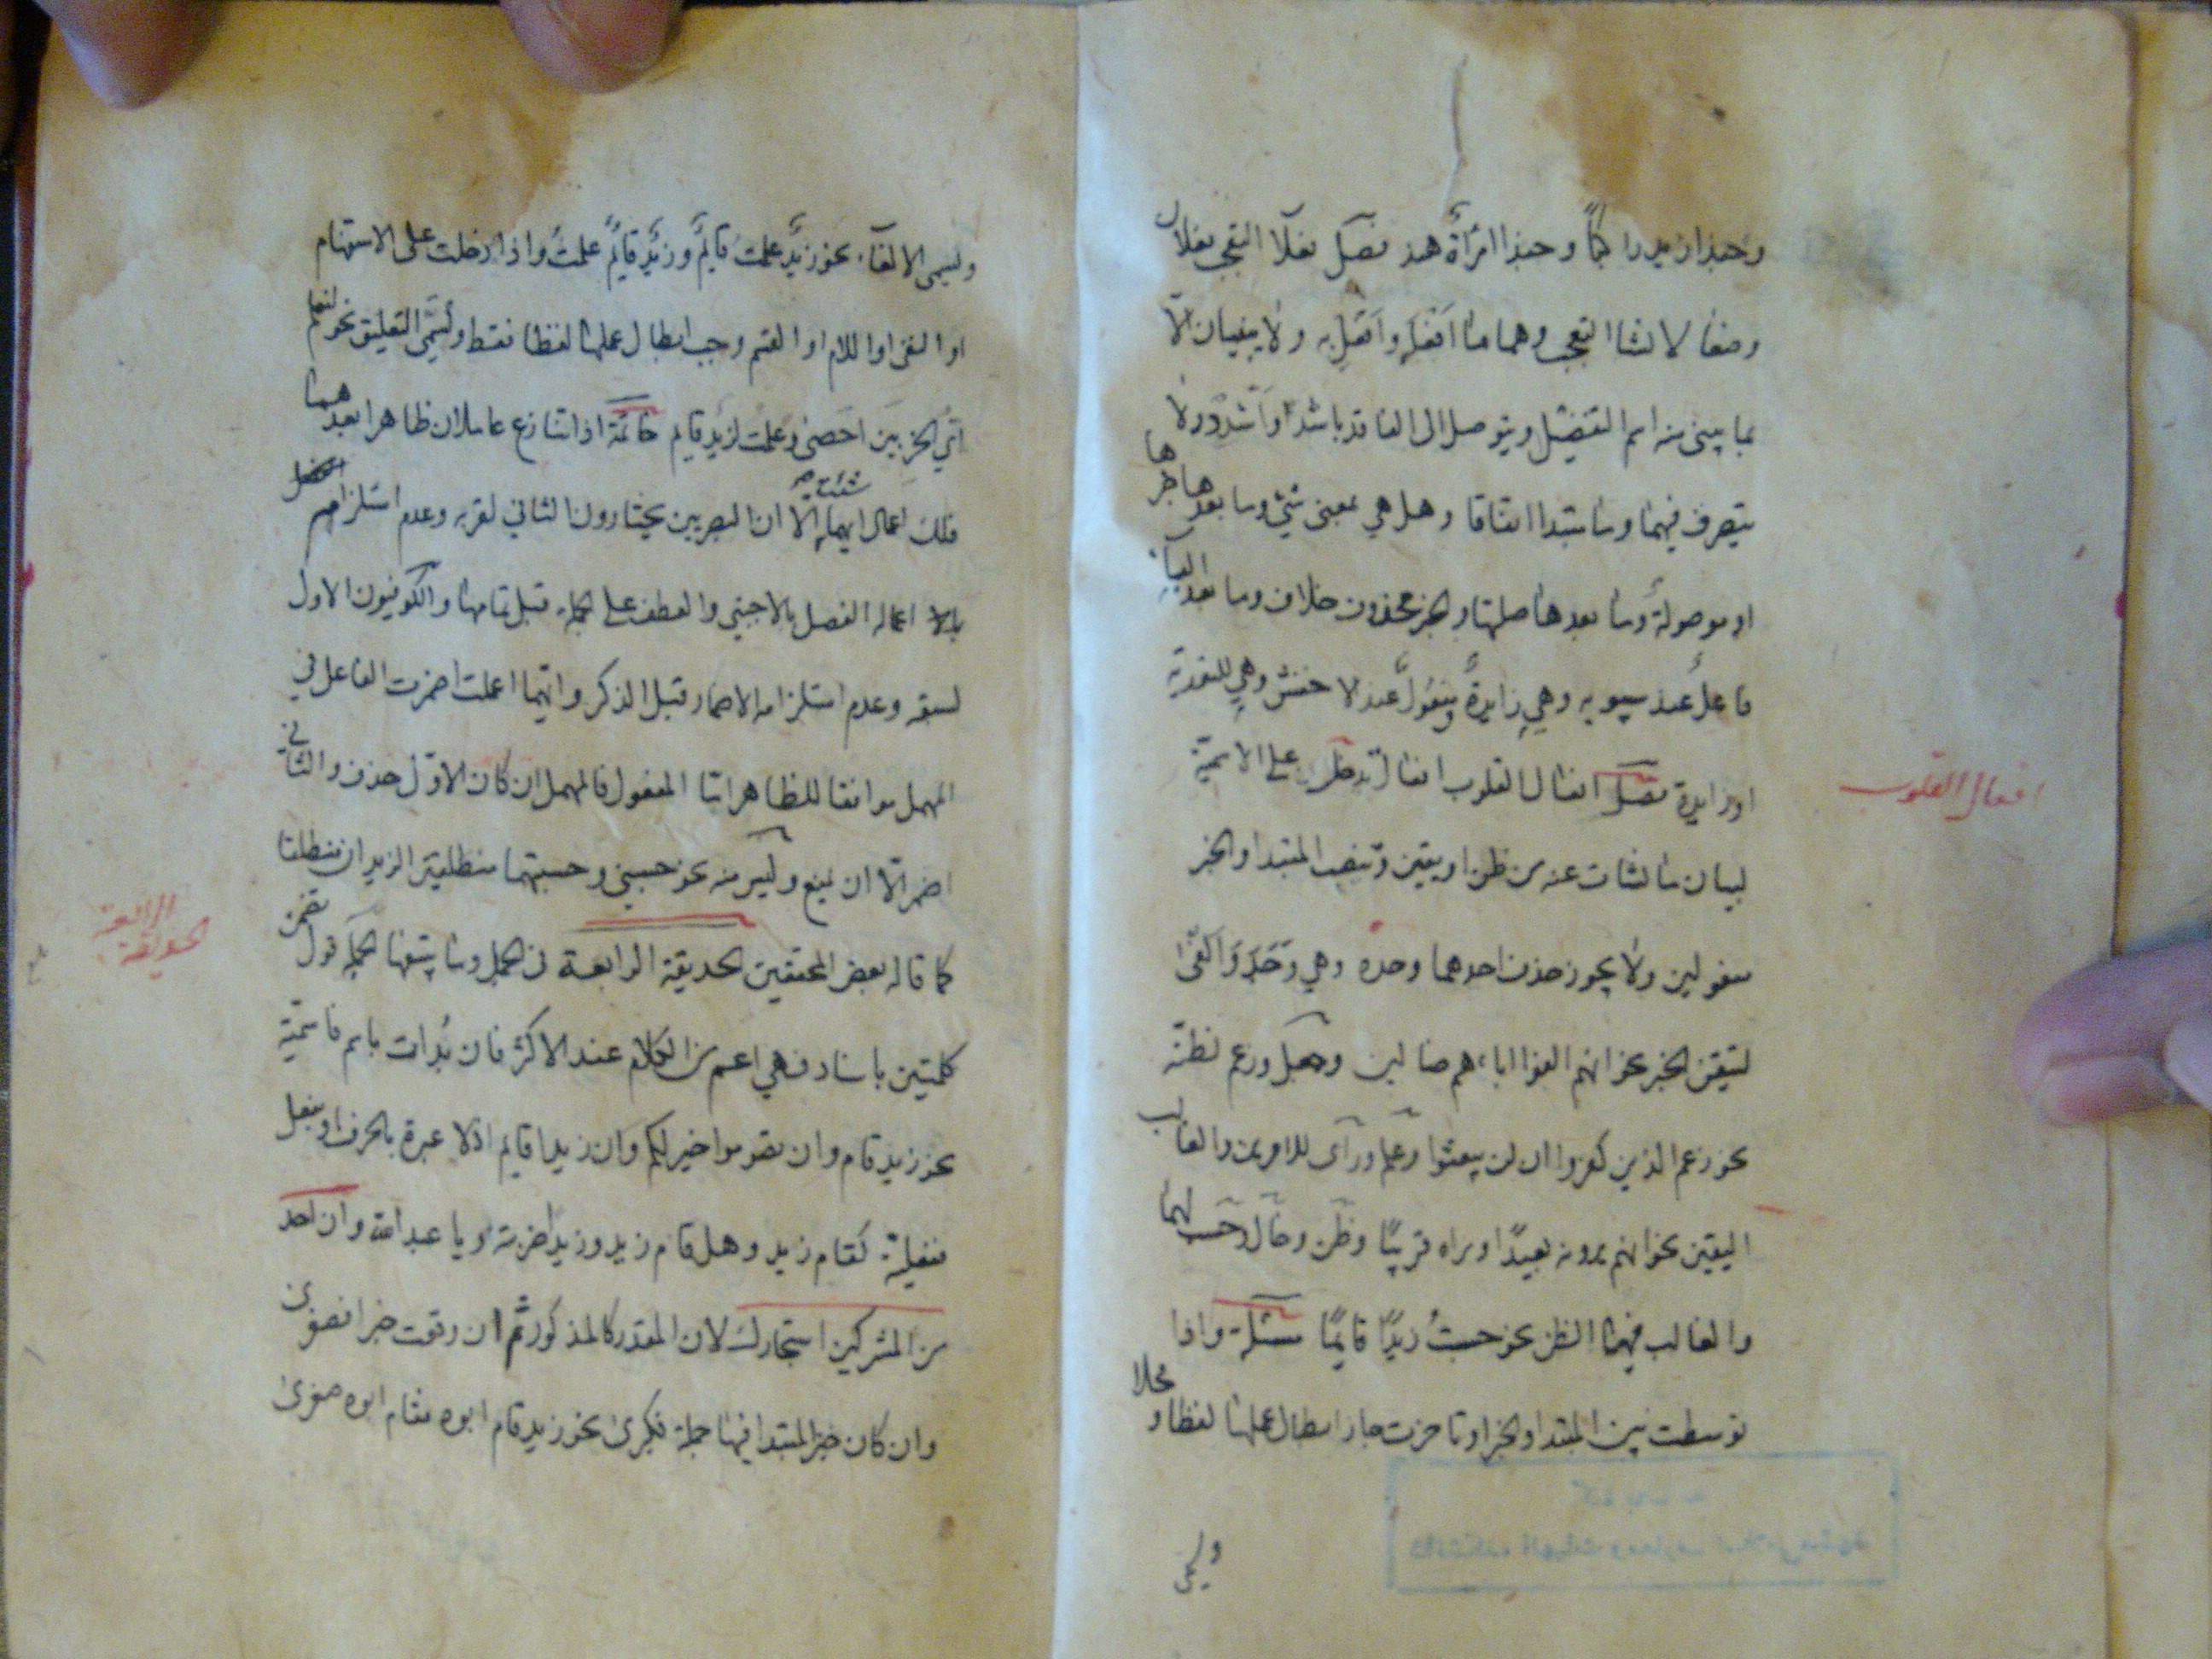 وحبذا زيد راكبا وحبذا امرأة هند فصل فعلا التعجب فعلان
وضعا لانشا التعجب وهما ما افعله وافعل به ولا يبنيان الا
مما يبنى منه اسم التفضيل ويتوصل الى الفاقد باشد واشدد ولا
يتصرف فيهما وما مبتدا اتفاقا وهل هي بمعنى شئ وما بعدها خبرها
او موصولة وما بعدها صلتها والخبر محذوف خلاف وما بعد البآء
فاعل عند سيبويه وهي زايدة ومفعول عند الاخفش وهي للتعدية
او زايدة فصل افعال القلوب افعال تدخل على الاسمية
افعال القلوب
لبيان ما نشات عنه من ظن او يقين وتنصب المبتدا والخبر
مفعولين ولا يجوز حذف احدهما وحده وهي وجد والفى
لتيقن الخبر نحو انهم الفوا اباءهم ضالين وجعل وزعم لظنه
نحو زعم الذين كفروا ان لن يبعثوا وعلم ورآى للامرين والغالب
اليقين نحو انهم يرونه بعيدا ونراه قريبا وظن وخال وحسب لهما
والغالب فيهما الظن نحو حسبت زيدا قايما مسئلة واذا
توسطت بين المبتدا والخبر او تاخرت جاز ابطال عملها لفظا ومحلا
وليمى
وليسمى الالغآء نحو زيد علمت قايم وزيد قايم علمت واذا دخلت على الاستفهام
او النفى او اللام او القسم وجب ابطال عملها لفظا فقط وليسمى التعليق نحو لنعلم
اي الحزبين احصى وعلمت لزيد قايم خاتمة اذا تنازع عاملان ظاهرا بعدهما
فلك اعمال ايهما شئت الا ان البصريين يختارون الثاني لقربه وعدم استلزام
اعماله الفصل بالاجنبي والعطف على الجملة قبل تمامها والكوفيون الاول
لسبقه وعدم استلزامه الاضمار قبل الذكر وايهما اعملت اضمرت الفاعل في
المهمل موافقا للظاهر اما المفعول فالمهمل ان كان الاول حذف والثاني
اضمر الا ان يمنع وليس منه نحو حسبني وحسبتهما منطلقين الزيدان منطلقا
كما قاله بعض المحققين الحديقة الرابعة في الجمل وما يتبعها الجملة قول تضمن
الحديقة الرابعة
كلمتين باسناد فهي اعم من الكلام عند الاكثر فان بدات باسم فاسمية
نحو زيد قام وان تصوموا خير لكم وان زيدا قايم اذ لا عبرة بالحرف او بفعل
ففعلية كقام زيد وهل قام زيد وزيدا ضربته ويا عبد الله وان احد
من المشركين استجارك لان المقدر كالمذكور ثم ان وقعت خبرا فصغرى
وان كان خبر المبتدا فيها جملة فكبرى نحو زيد قام ابوه فقام ابوه صغرى